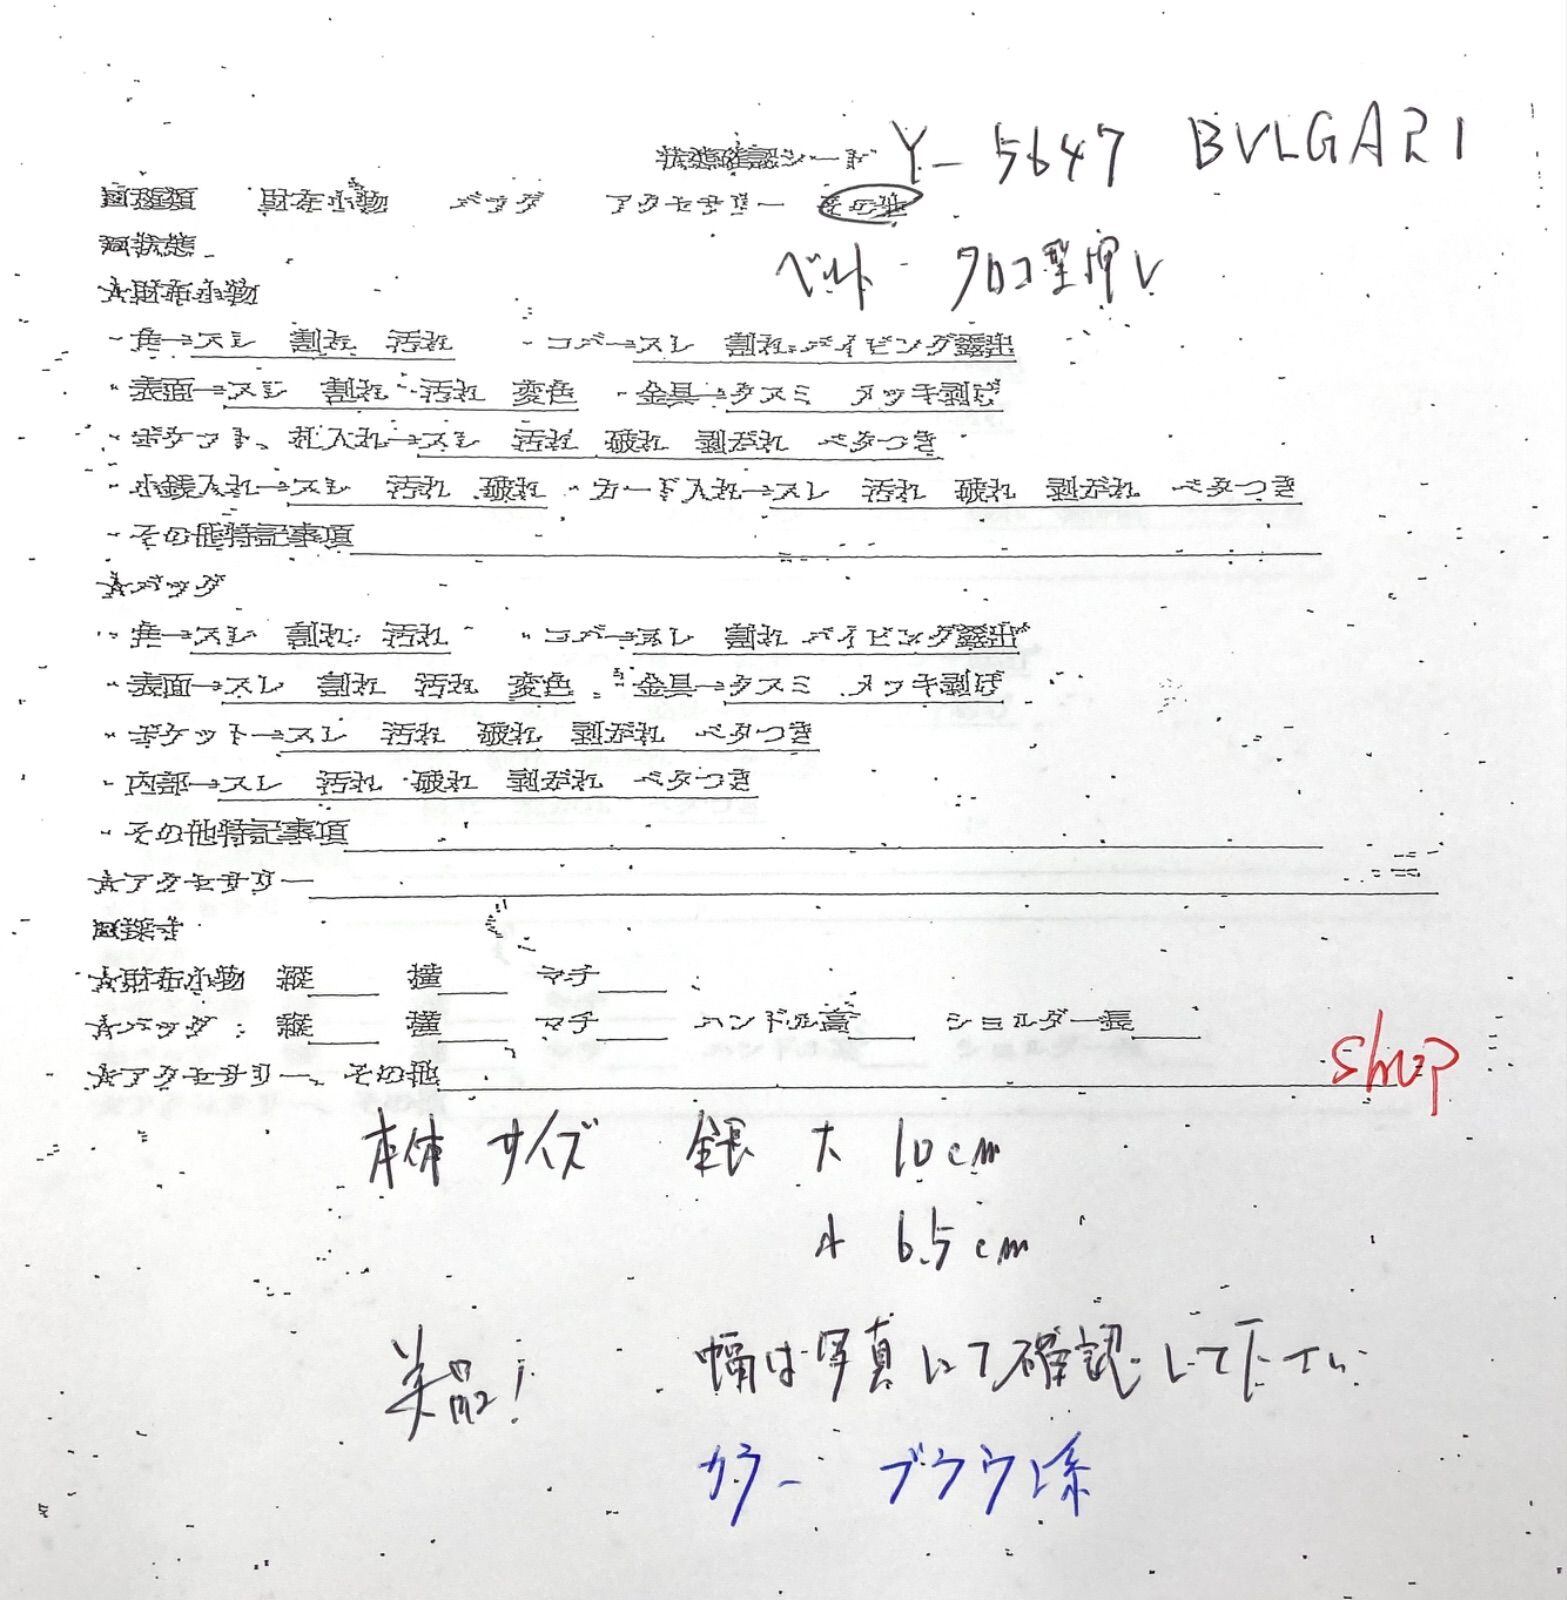 状態確認シート Y-5647 BVLGARI
□種類 財布小物 バッグ アクセサリー その他
□状態 ベルト クロコ型押し
☆財布小物
・角→スレ 割れ 汚れ ・コバ→スレ 割れ パイピング露出
・表面→スレ 割れ 汚れ 変色 ・金具→クスミ メッキ剥げ
・ポケット、札入れ→スレ 汚れ 破れ 剥がれ ベタつき
・小銭入れ→スレ 汚れ 破れ ・カード入れ→スレ 汚れ 破れ 剥がれ ベタつき
・その他特記事項
☆バッグ
・角→スレ 割れ 汚れ ・コバ→スレ 割れ パイピング露出
・表面→スレ 割れ 汚れ 変色 ・金具→クスミ メッキ剥げ
・ポケット→スレ 汚れ 破れ 剥がれ ベタつき
・内部→スレ 汚れ 破れ 剥がれ ベタつき
・その他特記事項
☆アクセサリー
□採寸
☆財布小物 縦 横 マチ
☆バッグ 縦 横 マチ ハンドル高 ショルダー長
☆アクセサリー、その他 shop
本体サイズ 全長 大 10cm
小 6.5cm
美品! 幅は写真にて確認して下さい
カラー ブラウン系